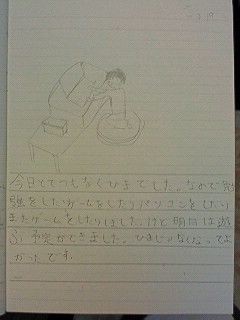 今日とてつもなくひまでした。なので勉
強をしたりゲームをしたりパソコンをしたり
またゲームをしたりしました。けど明日は遊
ぶ予定ができました。ひまじゃないなってよ
かったです。